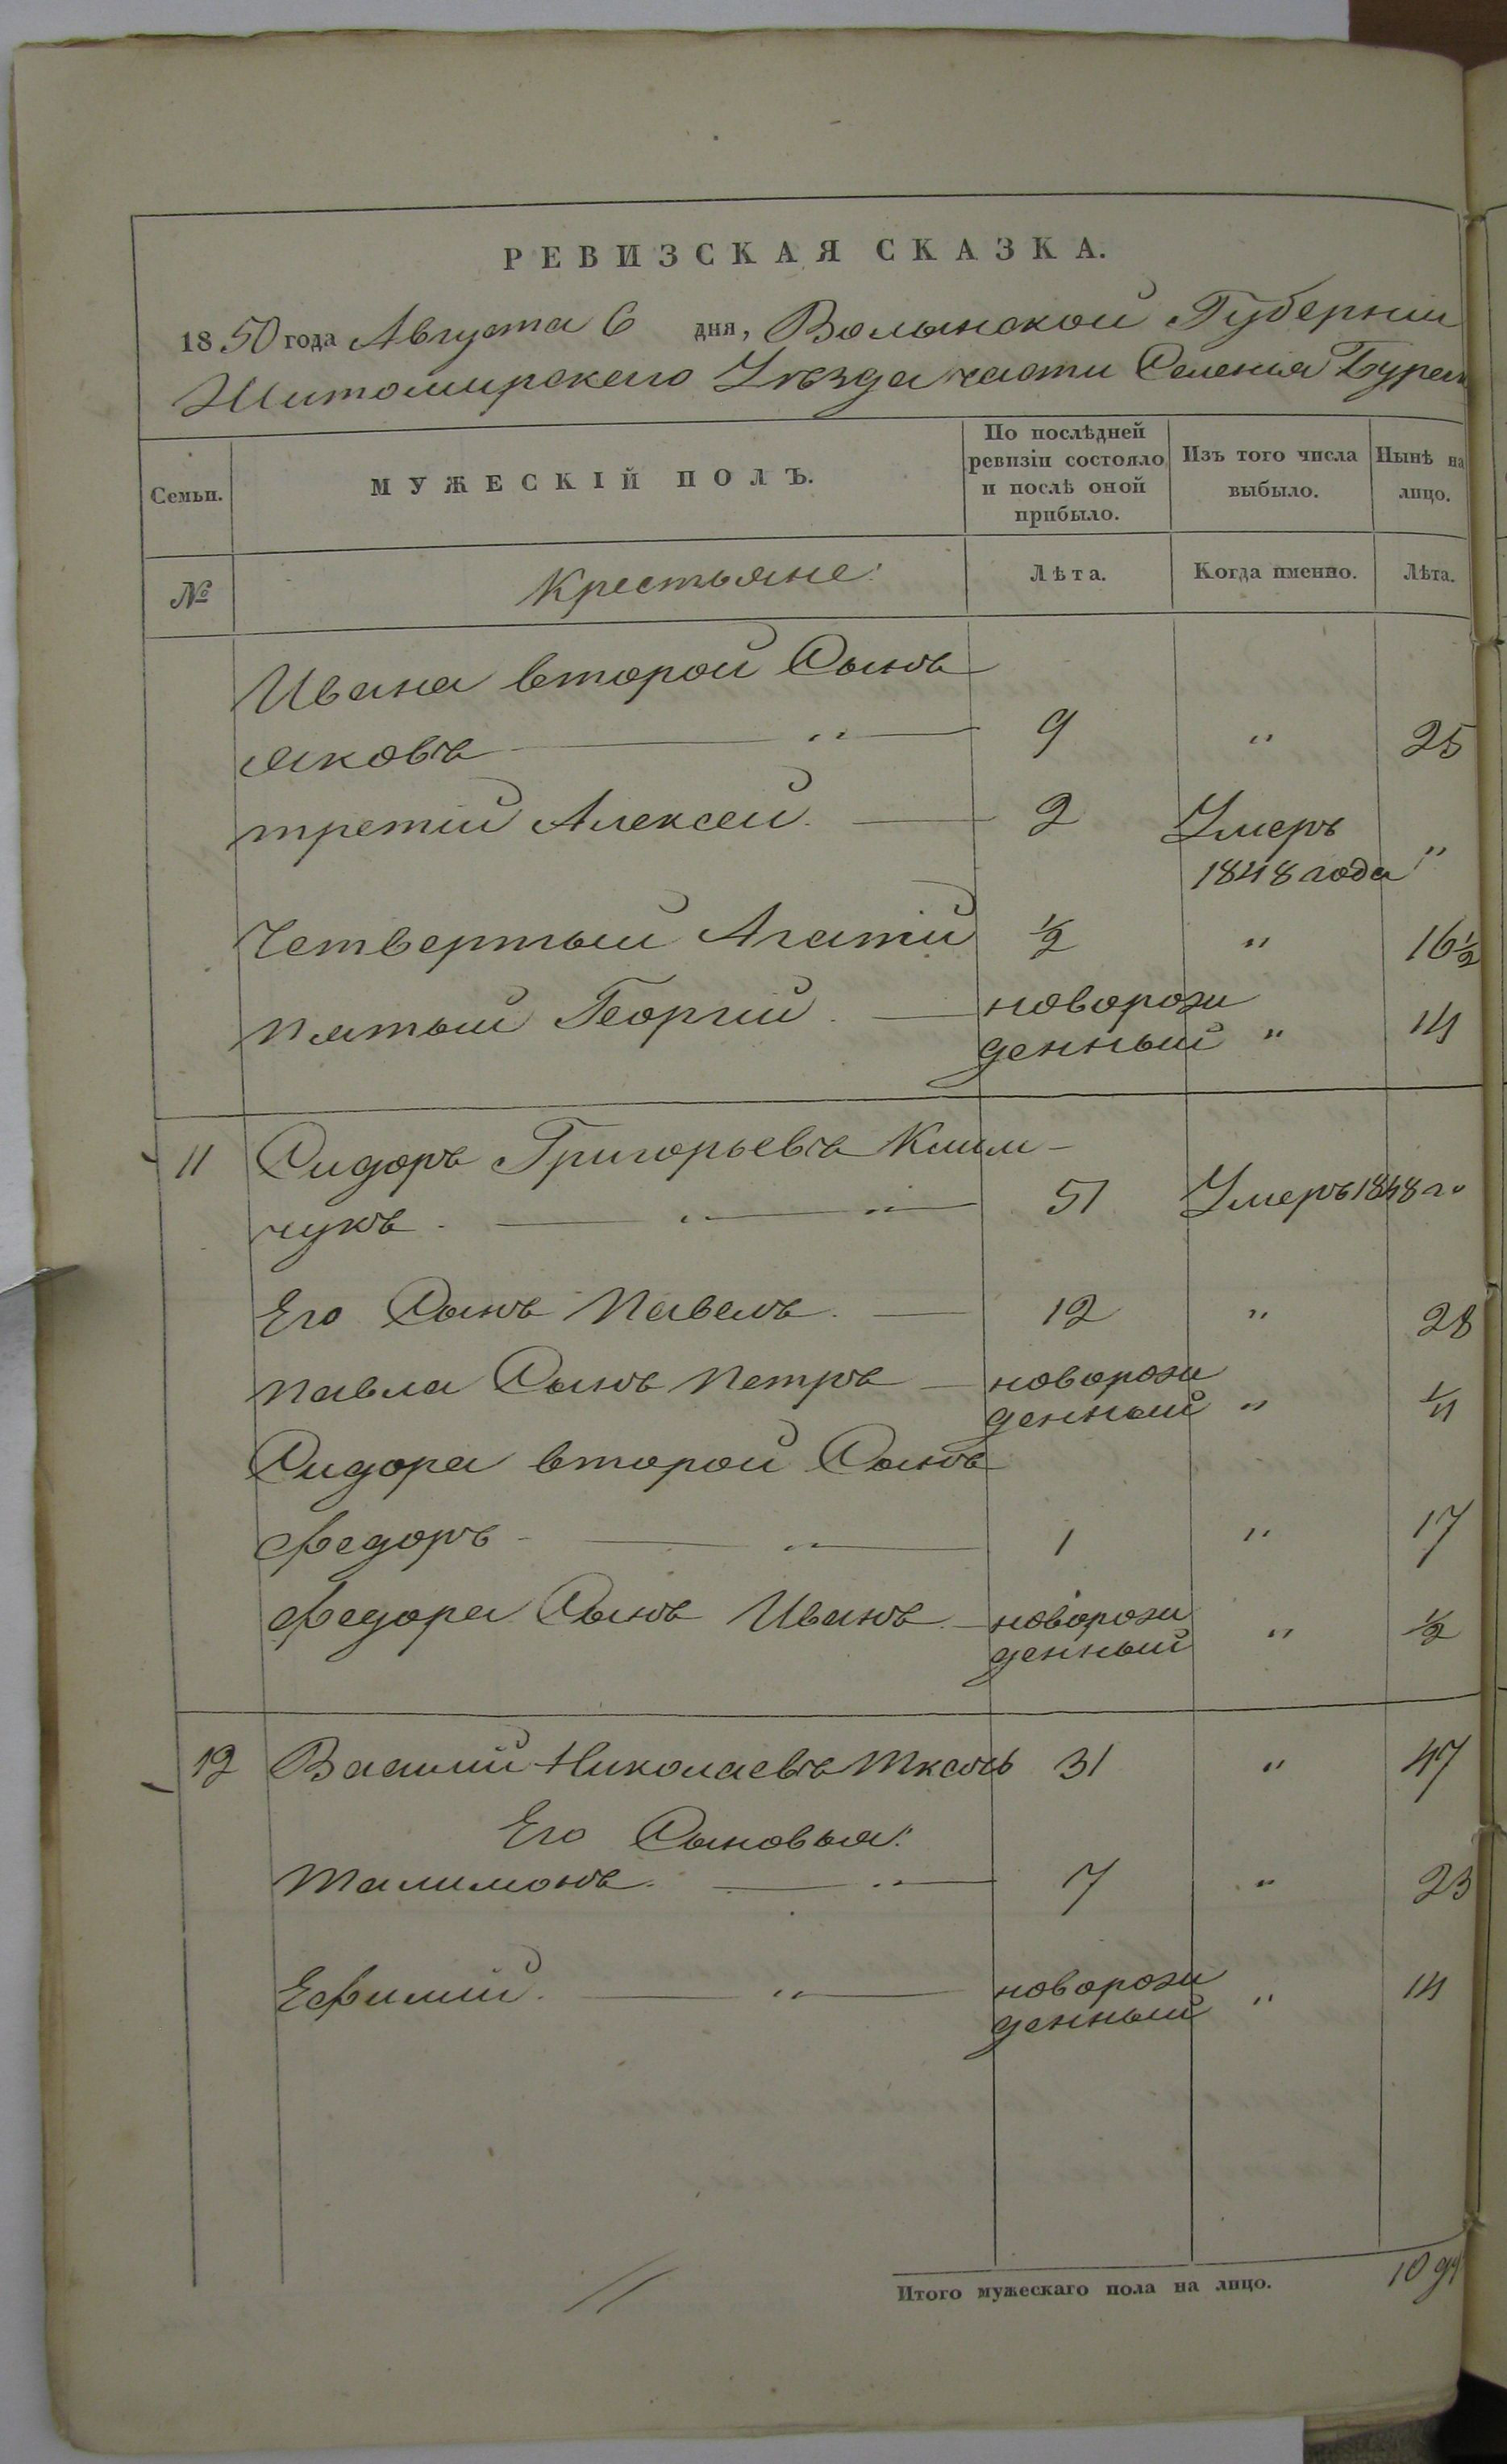 РЕВИЗСКАЯ СКАЗКА.
1850 года Августа 6 дня, Волынской Губернии
Житомирскаго Уѣзда части Селенія
Семьи. МУЖЕСКІЙ ПОЛЪ. По послѣдней ревизіи состояло и послѣ оной прибыло. Изъ того числа выбыло. Нынѣ на лицо.
№ Крестьяне: Лѣта. Когда именно. Лѣта.
Ивана второй Сынъ
Яковъ — " — 9 " 25
третій Алексей. — 2 Умеръ
1848 года "
Четвертый Агатій ½ " 16½
пятый Георгій. — новорож
денный " 14
11 Сидоръ Григорьевъ Клим-
чукъ. — " — " — 51 Умеръ 1848 го
Его Сынъ Павелъ. — 12 " 28
Павла Сынъ Петръ — новорож
денный " ¼
Сидора второй Сынъ
Федоръ — " — 1 " 17
Федора Сынъ Иванъ. — новорож
денный " ½
12 Василий Николаевъ Ткачъ 31 " 47
Его Сыновья:
Талимонъ. — " — 7 " 23
Ефимий. — " — новорож
денный " 14
Итого мужескаго пола на лицо. 10